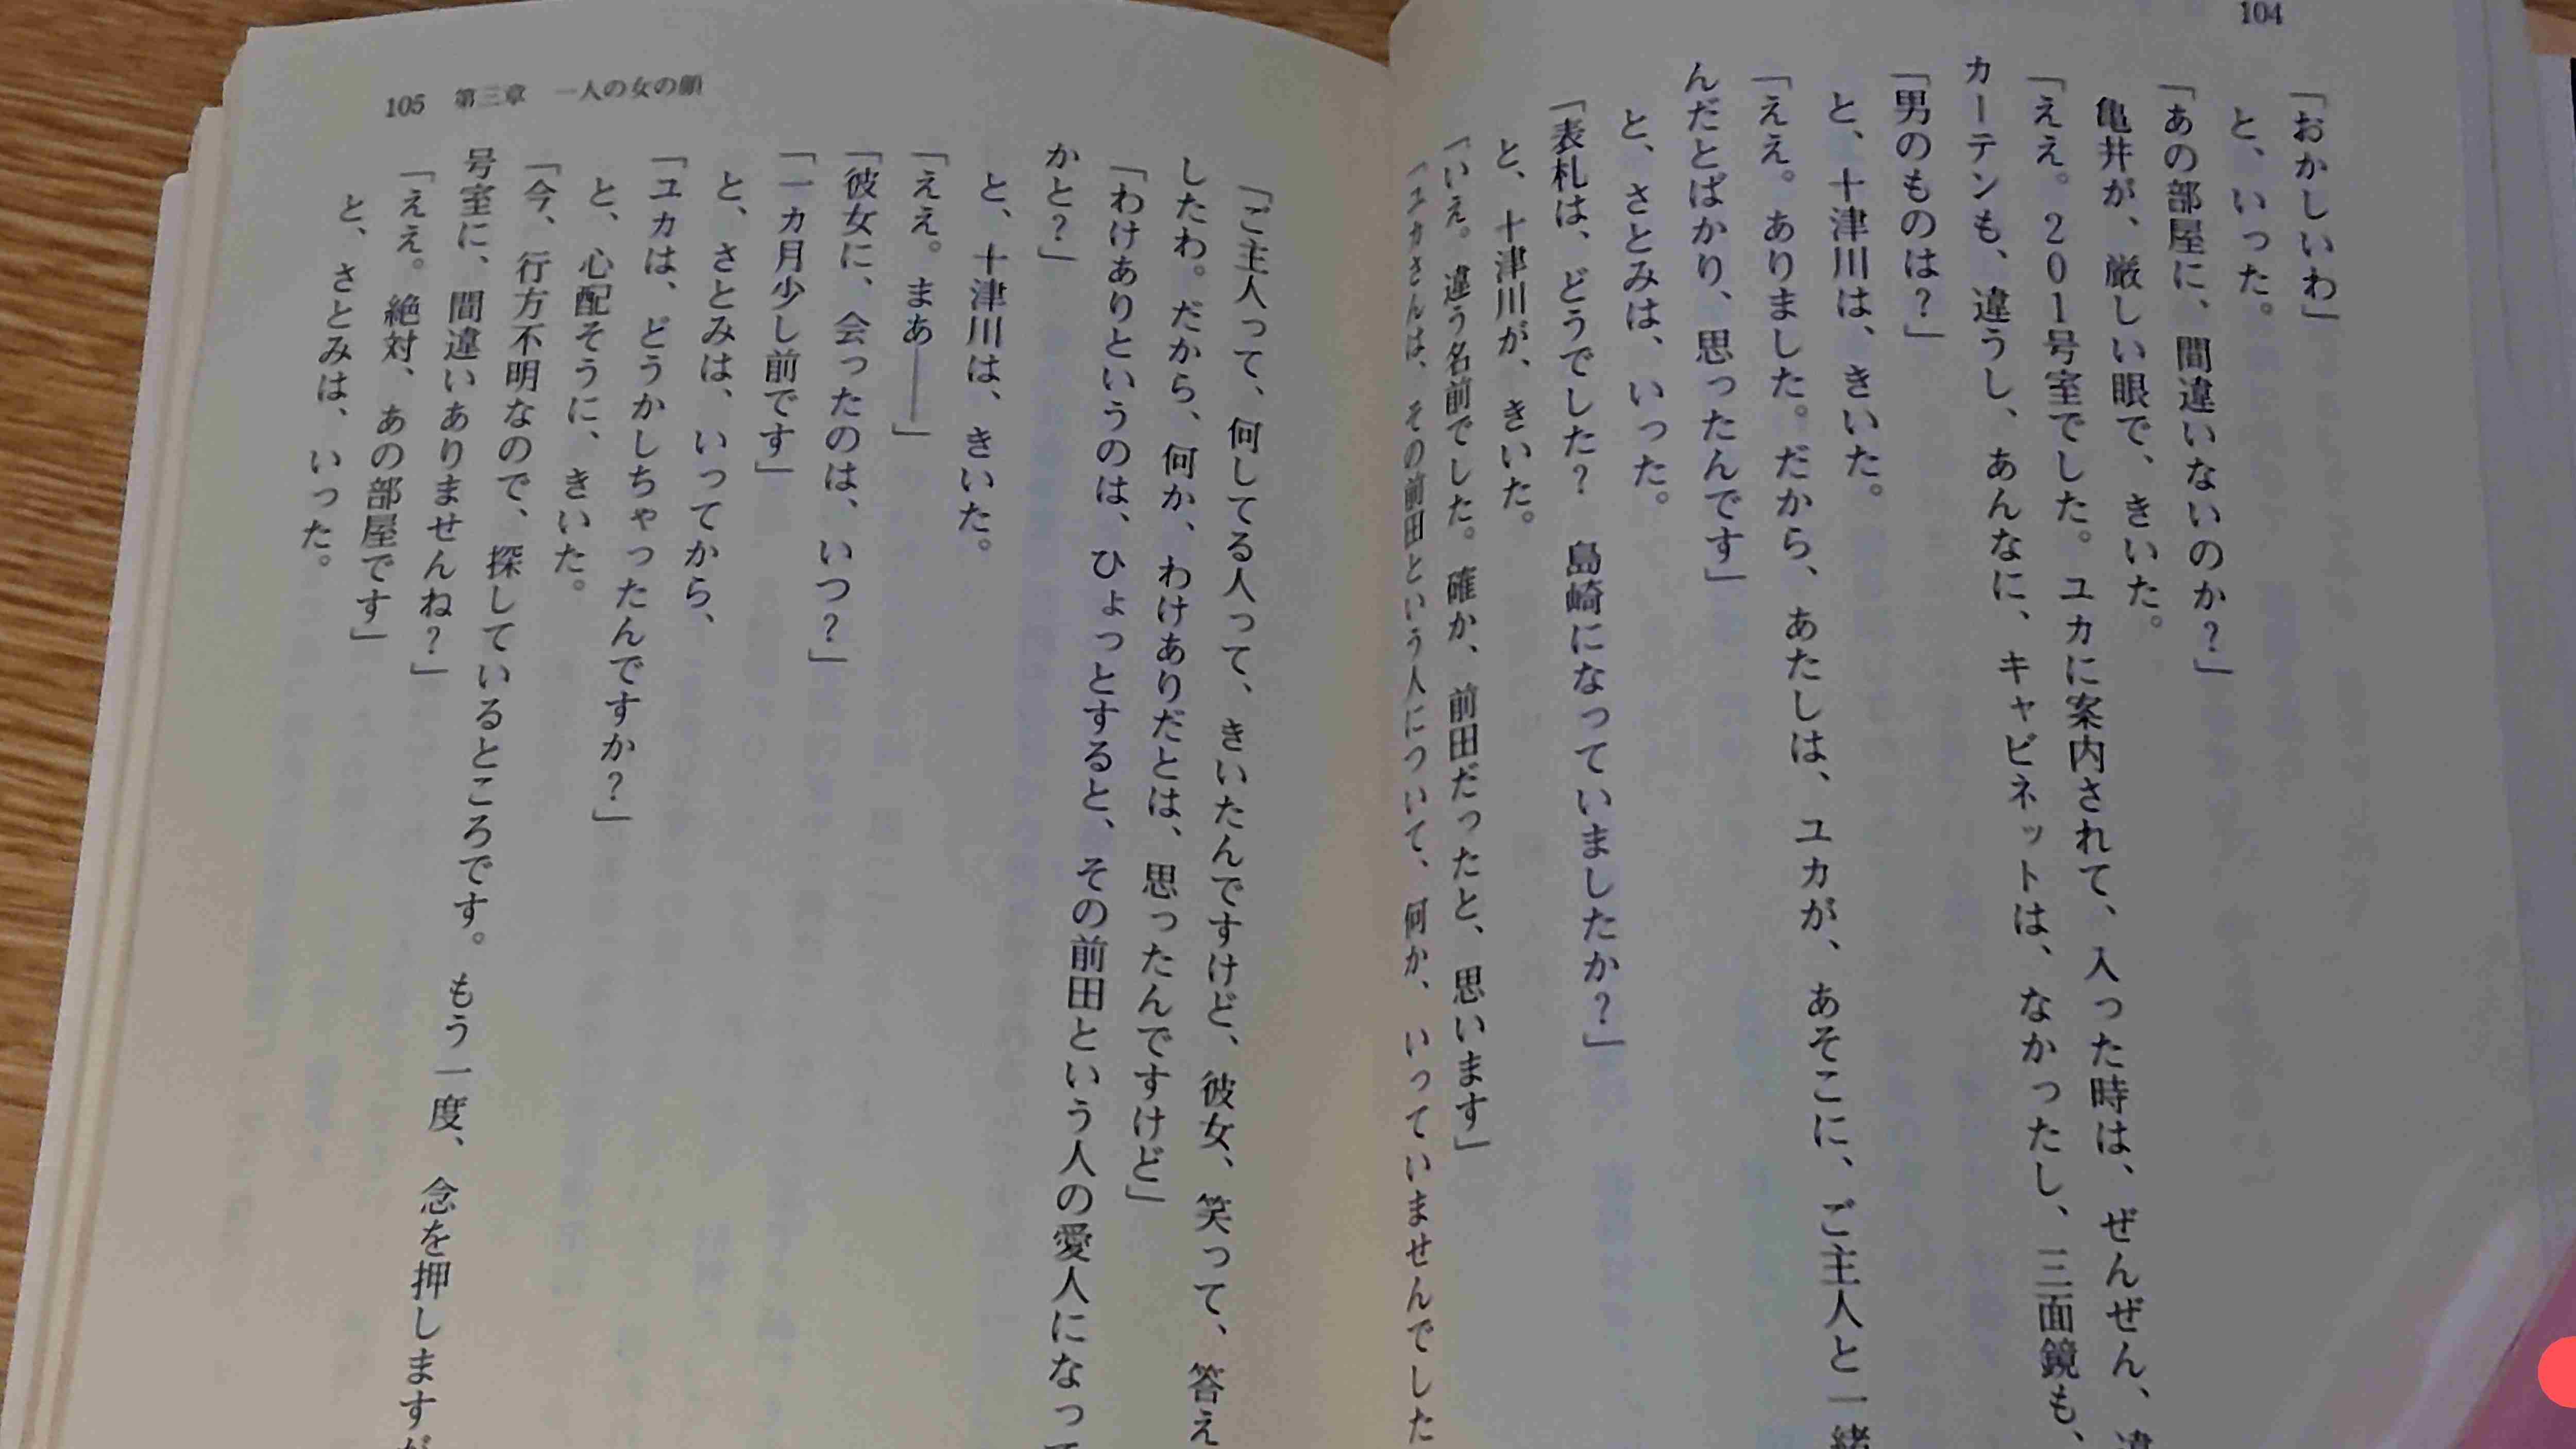 104
「おかしいわ」
と、いった。
「あの部屋に、間違いないのか？」
亀井が、厳しい眼で、きいた。
「ええ。201号室でした。ユカに案内されて、入った時は、ぜんぜん、違
カーテンも、違うし、あんなに、キャビネットは、なかったし、三面鏡も、
「男のものは？」
と、十津川は、きいた。
「ええ。ありました。だから、あたしは、ユカが、あそこに、ご主人と一緒
んだとばかり、思ったんです」
と、さとみは、いった。
「表札は、どうでした？　島崎になっていましたか？」
と、十津川が、きいた。
「いえ。違う名前でした。確か、前田だったと、思います」
「ユカさんは、その前田という人について、何か、いっていませんでした
105 第三章 一人の女の顔
「ご主人って、何してる人って、きいたんですけど、彼女、笑って、答え
したわ。だから、何か、わけありだとは、思ったんですけど」
「わけありというのは、ひょっとすると、その前田という人の愛人になって
かと？」
と、十津川は、きいた。
「ええ。まあ――」
「彼女に、会ったのは、いつ？」
「一カ月少し前です」
と、さとみは、いってから、
「ユカは、どうかしちゃったんですか？」
と、心配そうに、きいた。
「今、行方不明なので、探しているところです。もう一度、念を押しますが
号室に、間違いありませんね？」
「ええ。絶対、あの部屋です」
と、さとみは、いった。